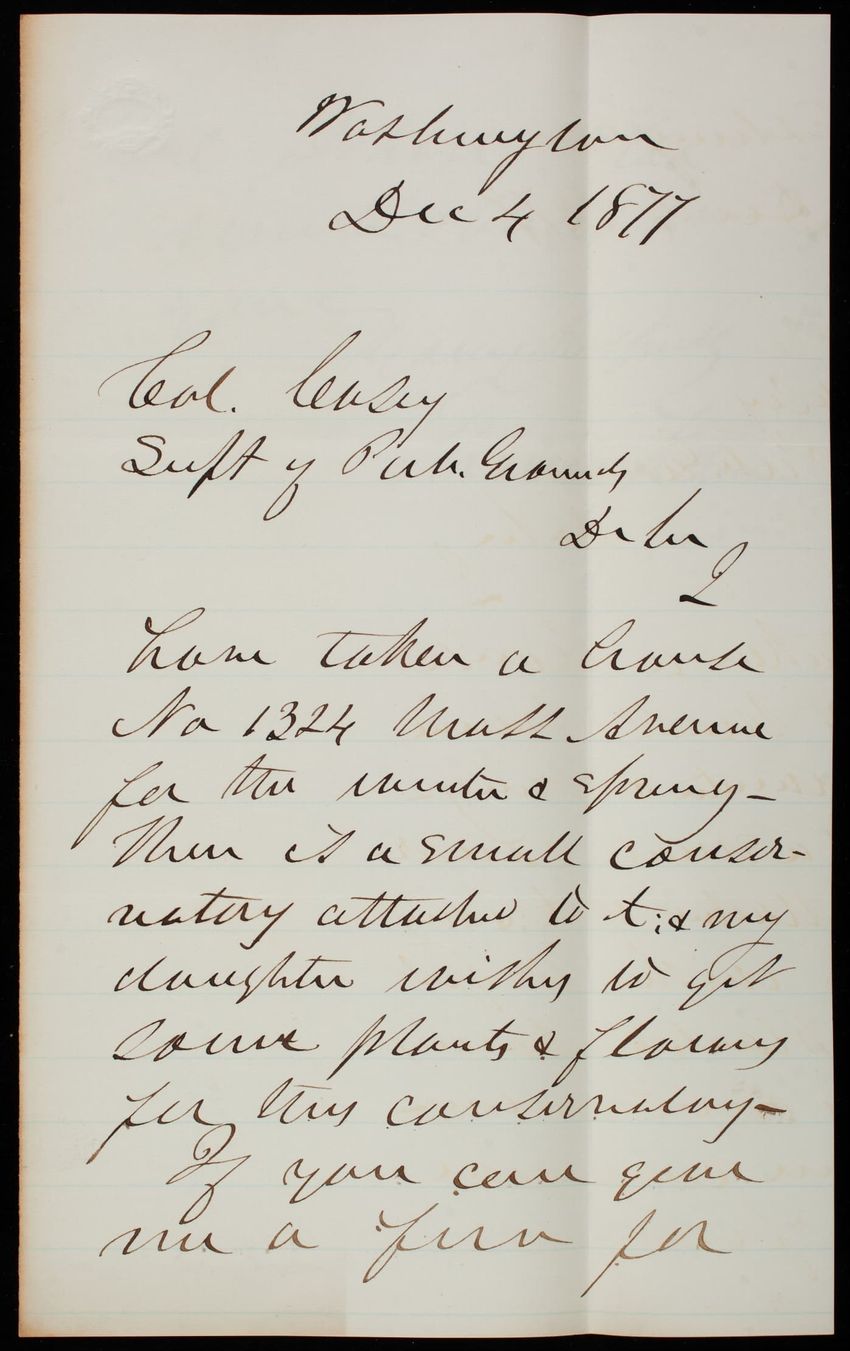 Washington
Dec 4 1877
Col. Casey
Supt of Pub. Grounds
Dr Sir
I
have taken a house
No 1324 Mass Avenue
for the winter & spring-
there is a small conser-
vatory attached to it; & my
daughter wishes to get
some plants & flowers
for this conservatory-
If you can give
me a few for